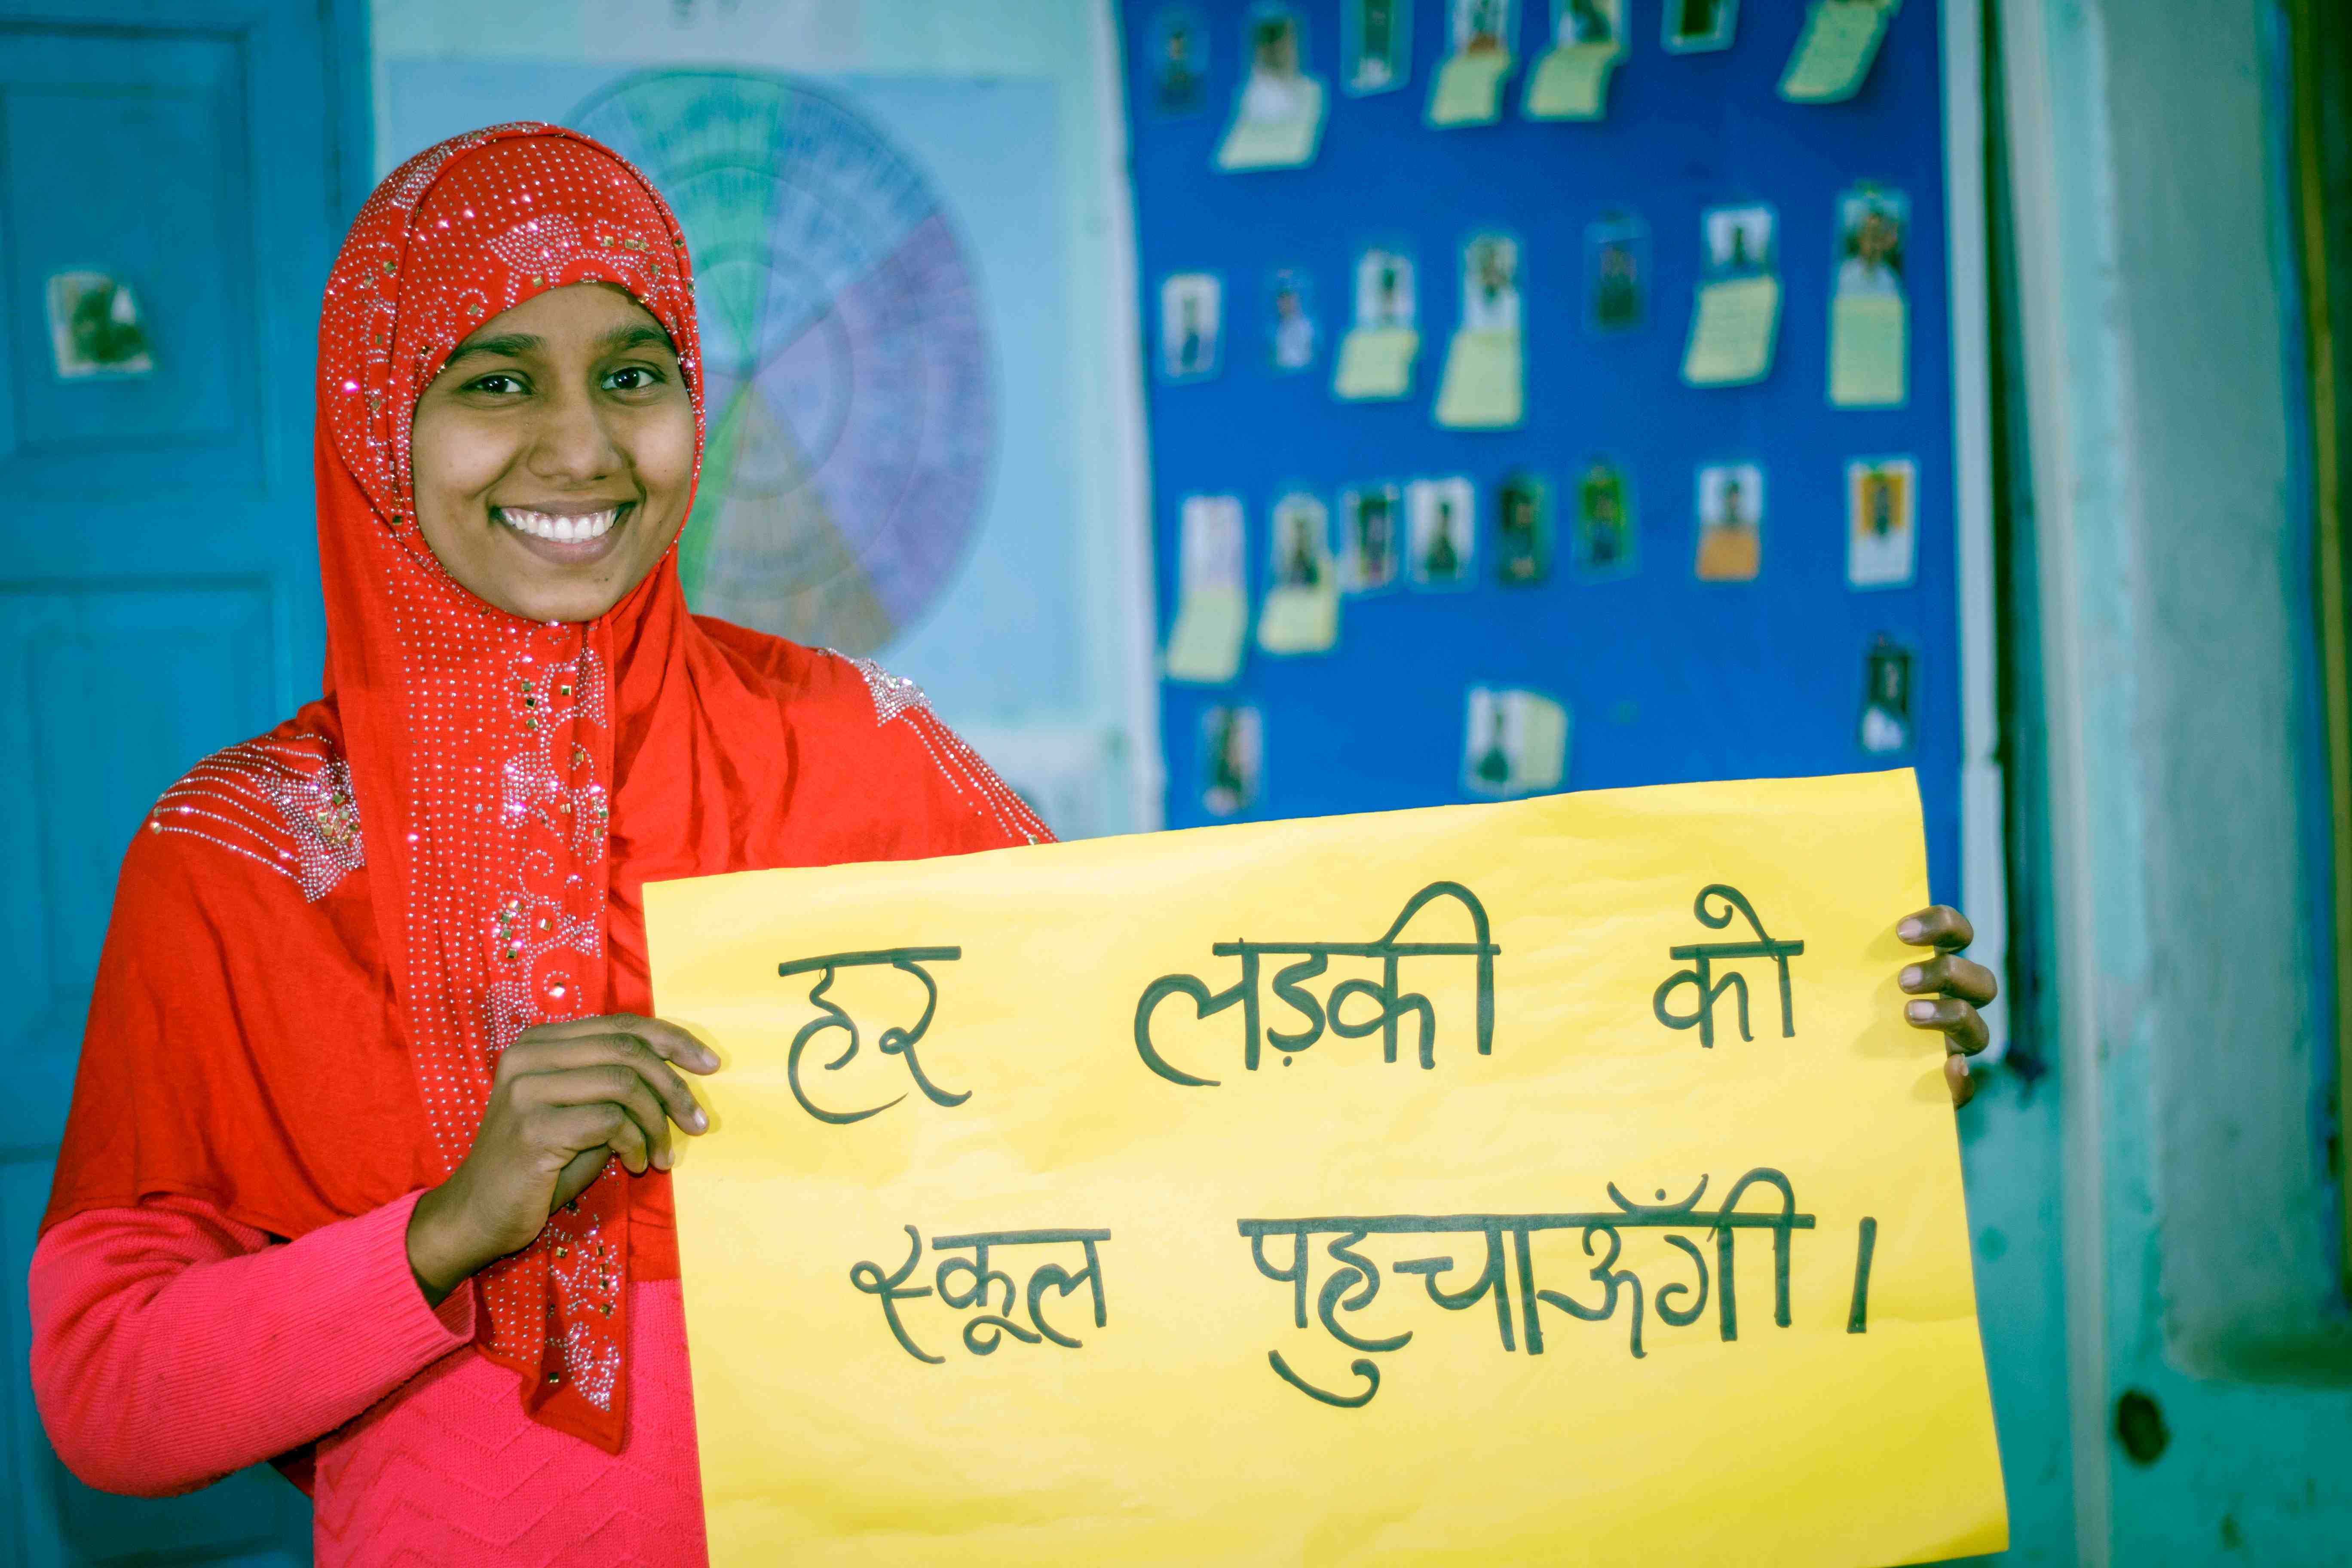 हर लड़की को
स्कूल पहुचाऊँगी।